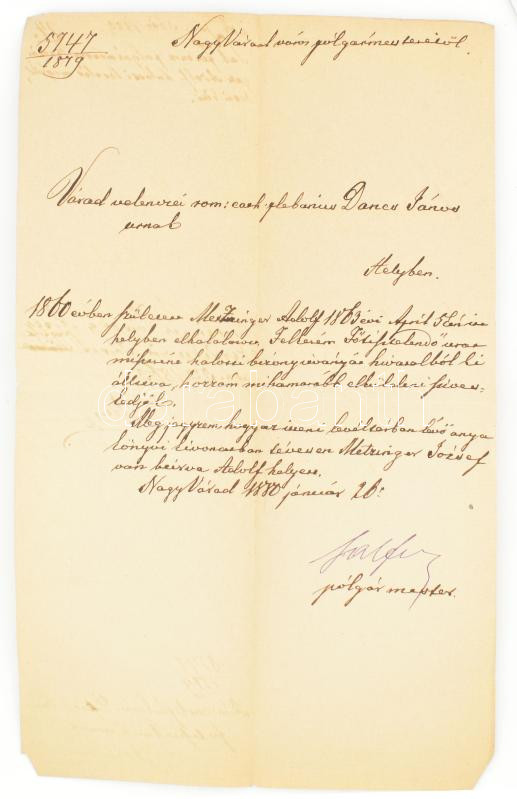 5747
1879
Nagy Várad város polgármesterétöl.
Várad velenczei rom: cath. plebanus Dancs János
urnak
Helyben.
1860 évben született Metzinger Adolf 1863 évi April 5én
helyben elhalálozván, Felkérem Tisztelendő urat
miszerint halotti bizonyitványát hivatalból ki
állitva, hozzám mihamarább elküldeni szives-
kedjék.
Megjegyzem hogy az itteni levéltárban lévő anya
könyvi kivonatban tévesen Metzinger József
van beirva Adolf helyett.
Nagy Várad 1880 január 26.
polgármester.